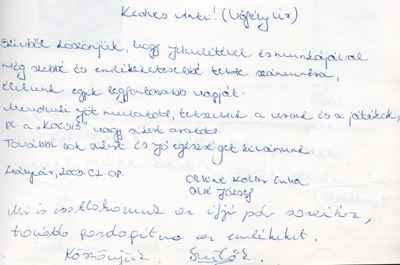 Kedves Anti! (Vőfély úr)
Szívből köszönjük, hogy jelenlétével és munkájával
még szebbé és emlékezetesebbé tette számunkra,
életünk egyik legfontosabb napját.
Mindenki jót mulatott, tetszettek a versek és a játékok,
és a "Kocsis" nagy sikert aratott.
További sok sikert és jó egészséget kívánunk
2009.02.08.
József
Mi is csatlakozunk az ifjú pár soraihoz,
tovább gazdagítva az emlékeket.
Köszönjük Szülők.